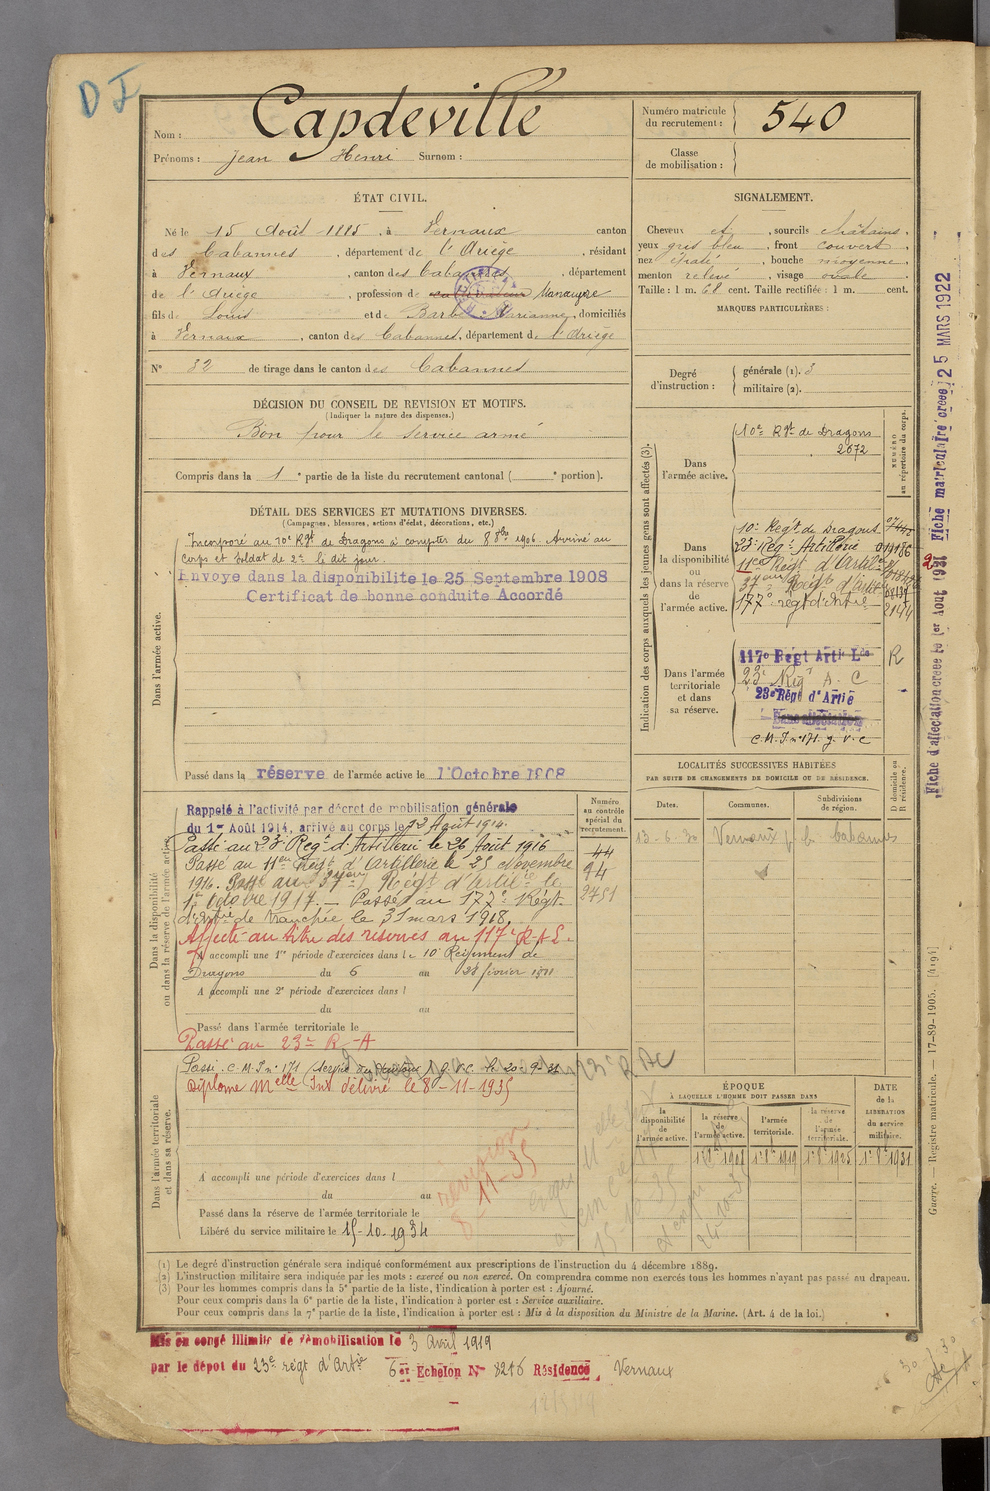 D I
Nom : Capdeville
Prénoms : Jean Henri Surnom :
Numéro matricule du recrutement : 540
Classe de mobilisation :
ÉTAT CIVIL.
Né le 15 Août 1885, à Vernaux canton
des Cabannes, département de l'Ariège, résidant
à Vernaux, canton des Cabannes, département
de l'Ariège, profession de cultivateur Manœuvre
fils de Louis et de Barbe Marianne, domiciliés
à Vernaux, canton des Cabannes, département de l'Ariège
N° 32 de tirage dans le canton des Cabannes
SIGNALEMENT.
Cheveux et, sourcils châtains,
yeux gris bleu, front couvert,
nez épaté, bouche moyenne,
menton relevé, visage ovale
Taille : 1 m. 68 cent. Taille rectifiée : 1 m. cent.
MARQUES PARTICULIÈRES :
Degré d'instruction : générale (1). 3
militaire (2).
DÉCISION DU CONSEIL DE REVISION ET MOTIFS.
(Indiquer la nature des dispenses.)
Bon pour le service armé
Compris dans la 1e partie de la liste du recrutement cantonal ( e portion).
DÉTAIL DES SERVICES ET MUTATIONS DIVERSES.
(Campagnes, blessures, actions d'éclat, décorations, etc.)
Dans l'armée active.
Incorporé au 10e Rgt de Dragons à compter du 8 8bre 1906. Arrivé au
corps et Soldat de 2e le dit jour.
Envoye dans la disponibilite le 25 Septembre 1908
Certificat de bonne conduite Accordé
Passé dans la réserve de l'armée active le 1 Octobre 1908
Dans la disponibilité ou dans la réserve de l'armée active.
Rappelé à l'activité par décret de mobilisation générale
du 1er Août 1914, arrivé au corps le 12 Août 1914.
Passé au 23e Regt d'Artillerie le 26 Août 1916
Passé au 11eme Regt d'Artillerie le 25 Novembre
1916. Passé au 37eme Régt d'Artilrie le
1er Octobre 1917. — Passé au 177e Régt
d'Artrie de tranchée le 31 mars 1918
Affecté au titre des réserves au 117e R.A.L.
A accompli une 1re période d'exercices dans le 10 Régiment de
Dragons du 6 au 28 février 1911
A accompli une 2e période d'exercices dans l
du au
Passé dans l'armée territoriale le
Passé au 23e R-A
Numéro au contrôle spécial du recrutement.
44
94
2751
Dans l'armée territoriale et dans sa réserve.
Passé C.M.I n° 171 le 20-9-31
23e RAC
Diplome Melle Int délivré le 8-11-1935
revision
8-11-35
A accompli une période d'exercices dans l
du au
Passé dans la réserve de l'armée territoriale le
Libéré du service militaire le 15-10-1934
Indication des corps auxquels les jeunes gens sont affectés (3).
NUMÉRO au répertoire du corps.
Dans l'armée active.
10e Rgt de Dragons
2672
Dans la disponibilité ou dans la réserve de l'armée active.
10e Regt de Dragons
23e Reg. Artillerie
11e Regt d'Artil
37eme Régt d'Artil
177e regt d'Artie 2144
Dans l'armée territoriale et dans sa réserve.
117e Regt Artie Lde R
23e Regt A. C
23e Régt d'Artie
C.M.I n° 171. g. v. c
LOCALITÉS SUCCESSIVES HABITÉES
PAR SUITE DE CHANGEMENTS DE DOMICILE OU DE RÉSIDENCE.
Dates. Communes. Subdivisions de région. D domicile ou R résidence.
13-6-30 Vernaux les Cabannes
ÉPOQUE
À LAQUELLE L'HOMME DOIT PASSER DANS
la disponibilité de l'armée active. la réserve de l'armée active. l'armée territoriale. la réserve de l'armée territoriale. DATE de la LIBÉRATION du service militaire.
1er 8bre 1908 1er 8bre 1919 1er 8bre 1925 1er 8bre 1931
15-10-35
24-10-35
(1) Le degré d'instruction générale sera indiqué conformément aux prescriptions de l'instruction du 4 décembre 1889.
(2) L'instruction militaire sera indiquée par les mots : exercé ou non exercé. On comprendra comme non exercés tous les hommes n'ayant pas passé au drapeau.
(3) Pour les hommes compris dans la 5e partie de la liste, l'indication à porter est : Ajourné.
Pour ceux compris dans la 6e partie de la liste, l'indication à porter est : Service auxiliaire.
Pour ceux compris dans la 7e partie de la liste, l'indication à porter est : Mis à la disposition du Ministre de la Marine. (Art. 4 de la loi.)
Mis en congé illimité de démobilisation le 3 Avril 1919
par le dépot du 23e régt d'Artie 6er Echelon No 8246 Résidence, Vernaux
Fiche d'affectation creee le 1er Aout 1921 Fiche matriculaire creee 25 MARS 1922
Guerre. — Registre matricule. — 17-89-1905. [4194]